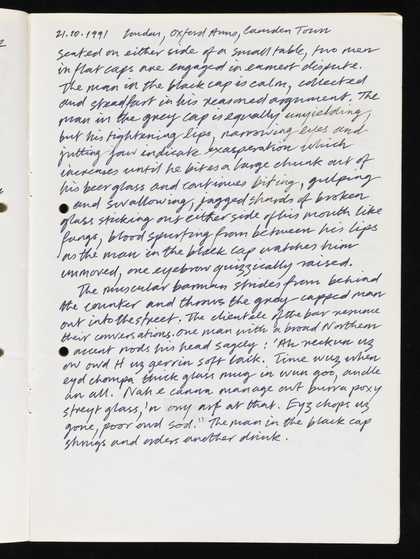 21.10.1991 London, Oxford Arms, Camden Town
Seated on either side of a small table, two men
in flat caps are engaged in earnest dispute.
The man in the black cap is calm, collected
and steadfast in his reasoned argument. The
man in the grey cap is equally unyielding,
but his tightening lips, narrowing eyes and
jutting jaw indicate exasperation which
increases until he bites a large chunk out of
his beer glass and continues biting, gulping
and swallowing, jagged shards of broken
glass sticking out either side of his mouth like
fangs, blood spurting from between his lips
as the man in the black cap watches him
unmoved, one eyebrow quizzically raised.
The muscular barman strides from behind
the counter and throws the grey-capped man
out into the street. The clientele of the bar resume
their conversations. One man with a broad Northern
accent nods his head sagely: 'Ah neckun uz
ow owd H uz gerrin soft baik. Time wuz when
eyd chompa thick glass mug in wun goo, andle
an all. Nah e canna manage out burra poxy
streyt glass, 'n ony arf at that. Eyz chops uz
gone, poor owd sod." The man in the black cap
shrugs and orders another drink.